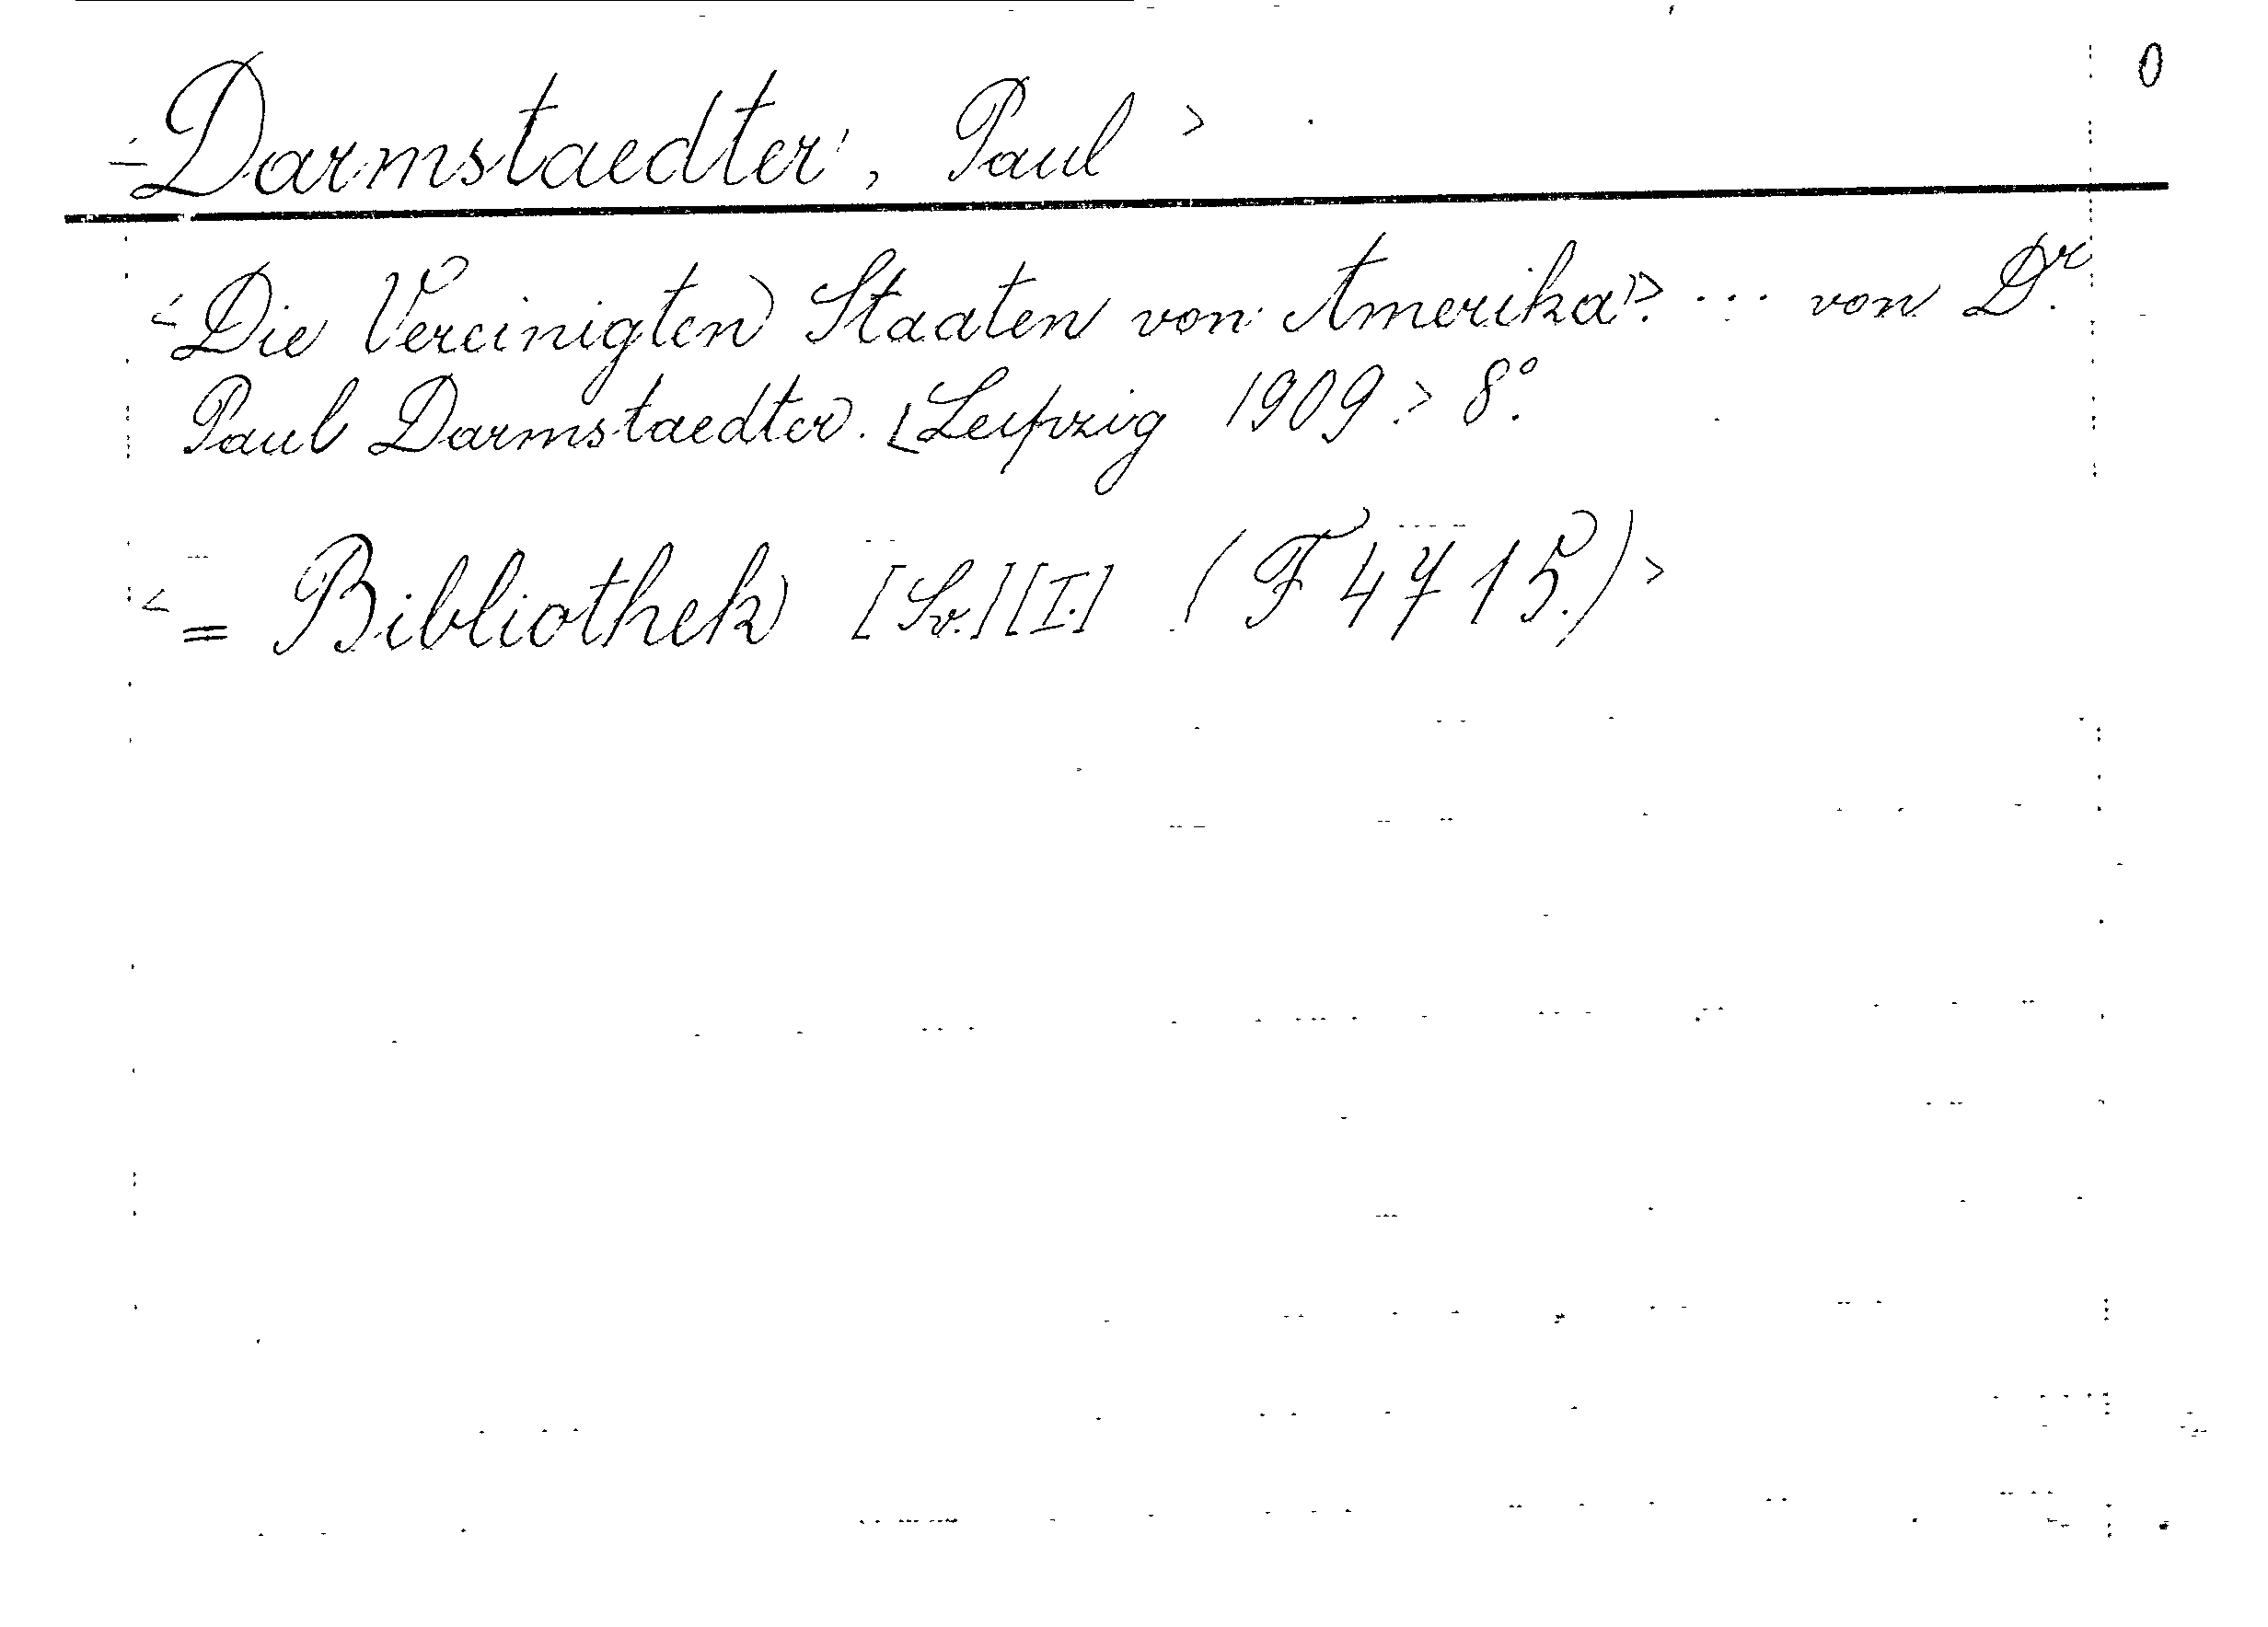 0
<Darmstaedter, Paul>
<Die Vereinigten Staaten von Amerika>. ... von Dr.
Paul Darmstaedter. <Leipzig 1909.> 8°.
<= Bibliothek [Sv.][I.] (F 4715.)>